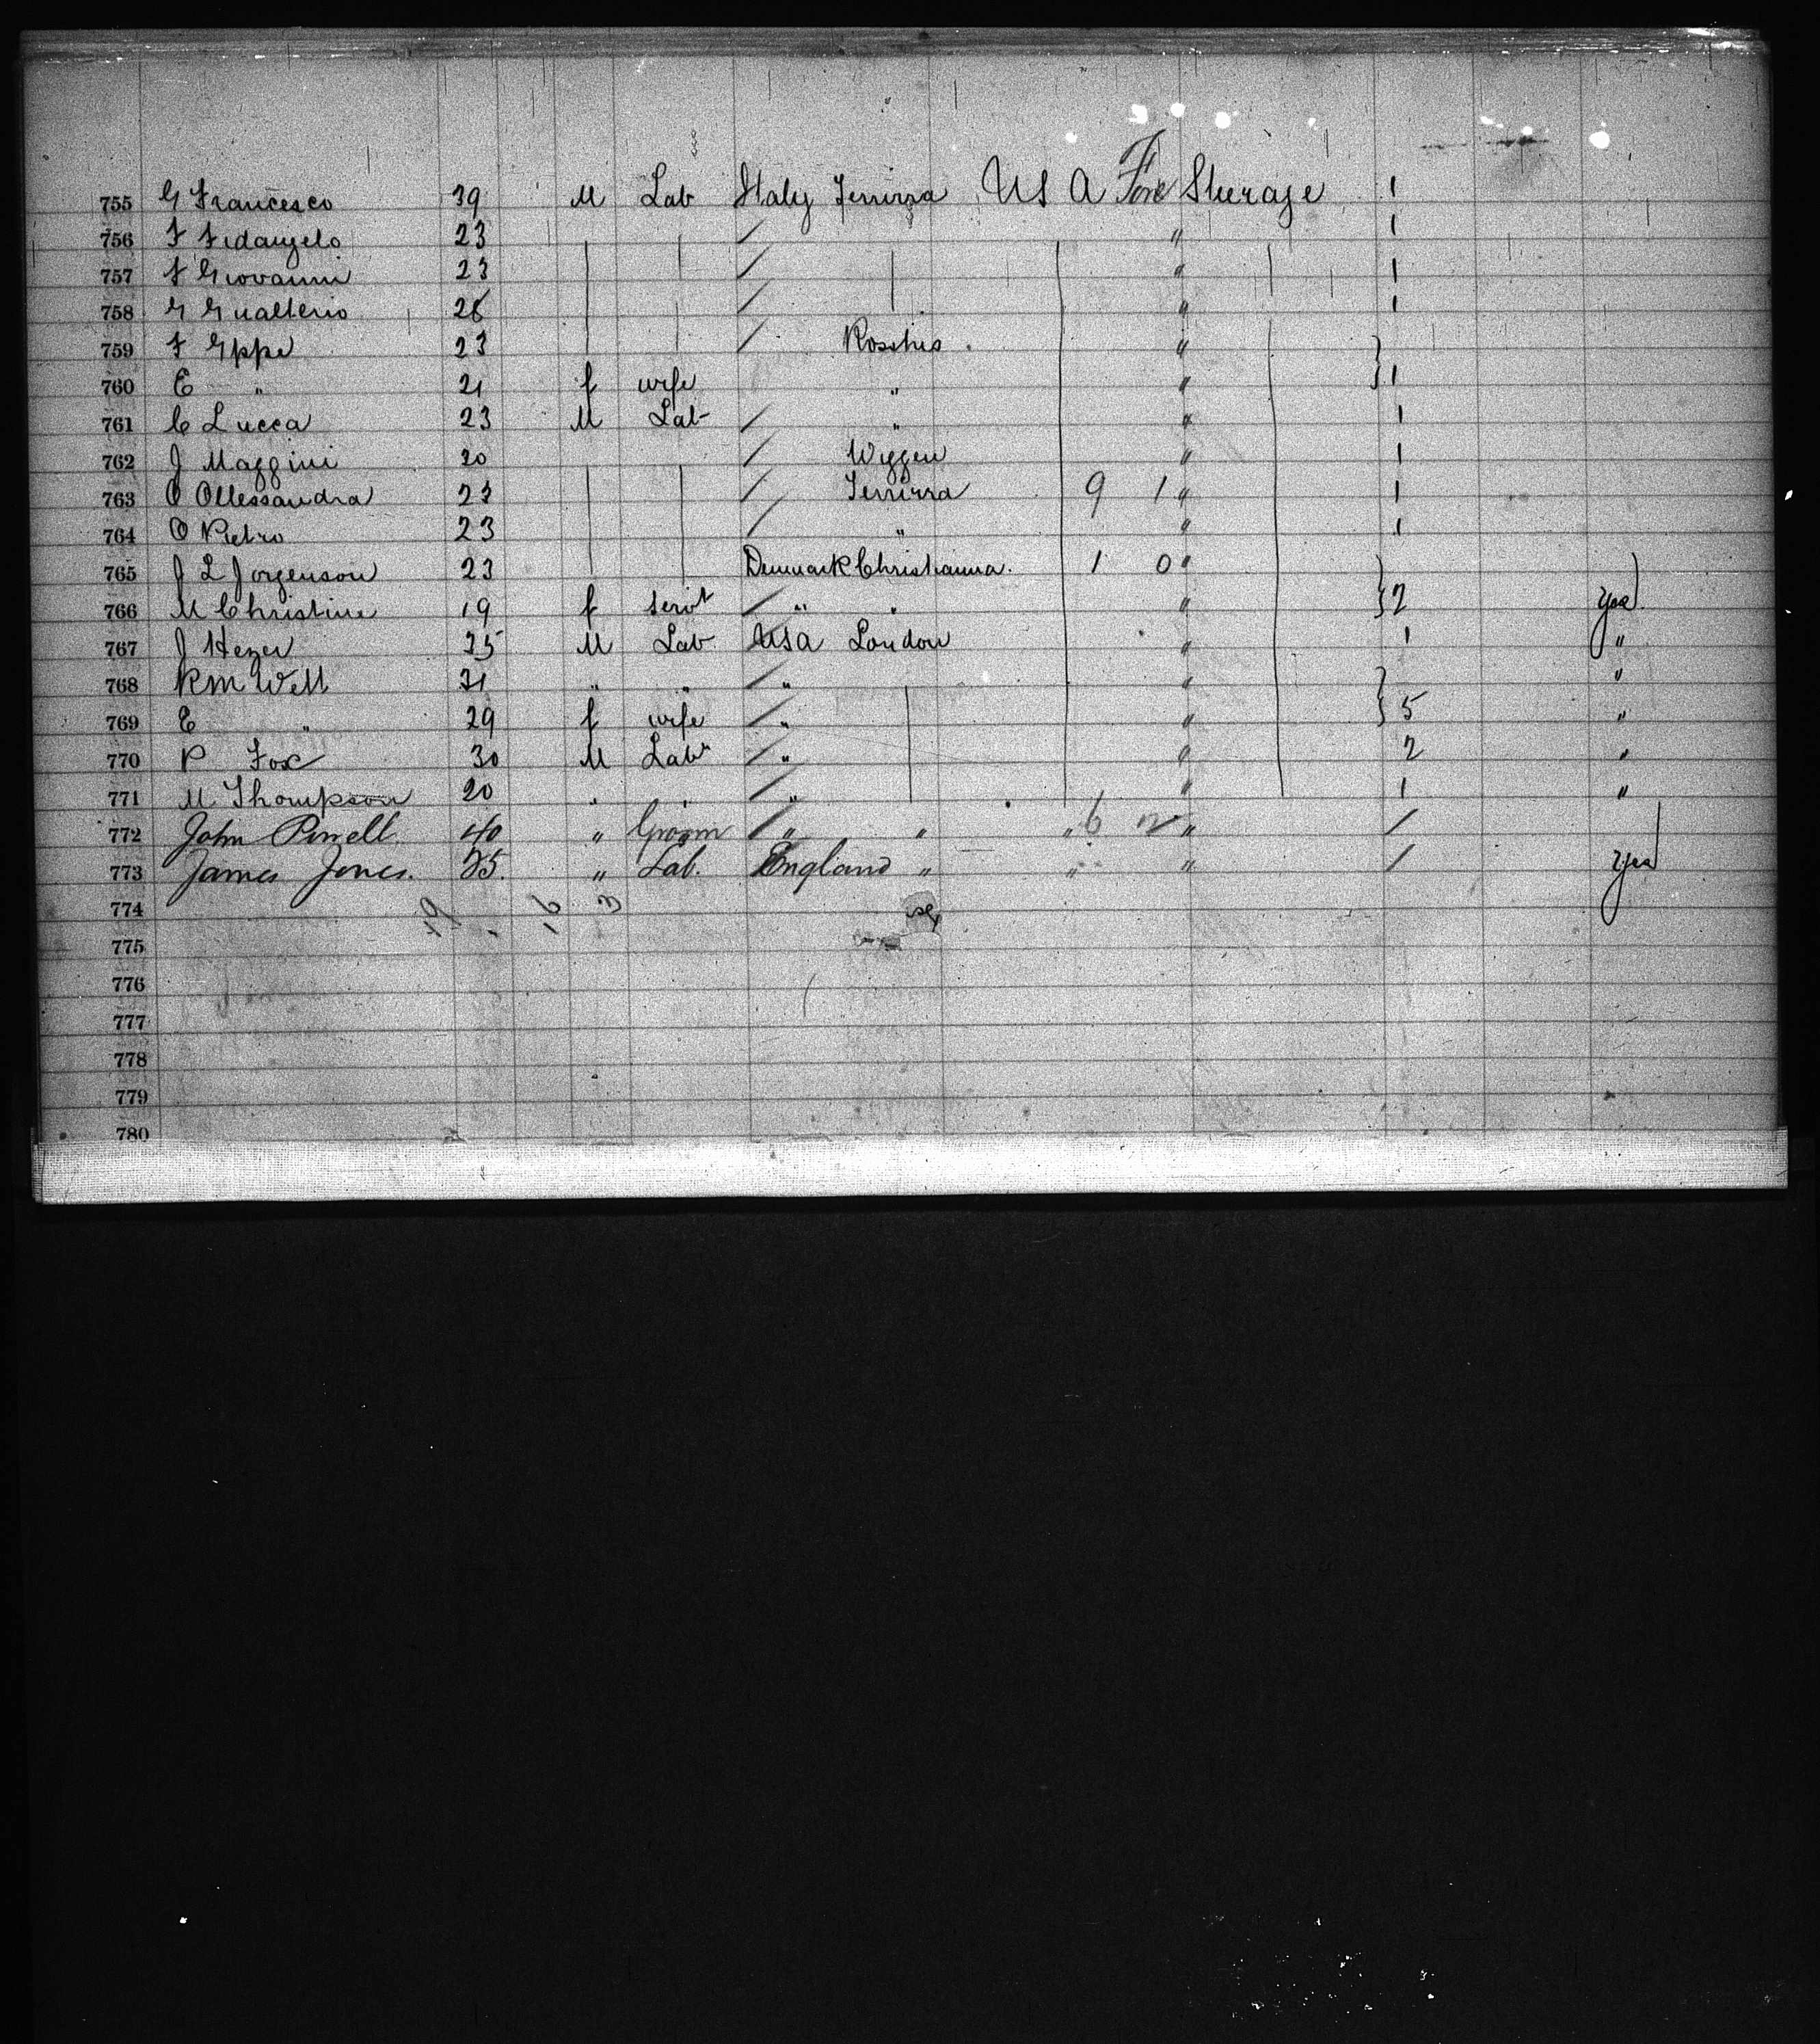 755 G Francesco 39 M Lab Italy Ferirra U S A Fore Steerage 1
756 F Fidangelo 23 / " 1
757 F Giovanni 23 / " 1
758 G Gualterio 26 / " 1
759 F Gppe 23 / " }
760 E " 21 f wife " " } 1
761 C Lucca 23 M Lab / " " 1
762 J Maggini 20 / " 1
763 O Ollessandra 23 / 9 1 " 1
764 O Pietro 23 / " " 1
765 J L Jorgenson 23 Denmark Christianna. 1 0 " }
766 M Christine 19 f Servt / " " " } 2 yes
767 J Hezer 35 M Lab USA London " 1 "
768 R M Well 31 " " / " " } "
769 E " 29 f wife / " " } 5 "
770 P Fox 30 M Lab / " " 2 "
771 M Thompson 20 " " / " " 1 "
772 John Powell 40 " Groom / " " " 6 " /
773 James Jones. 25. " Lab. England " " " / yes
774 19 16 3
775
776
777
778
779
780